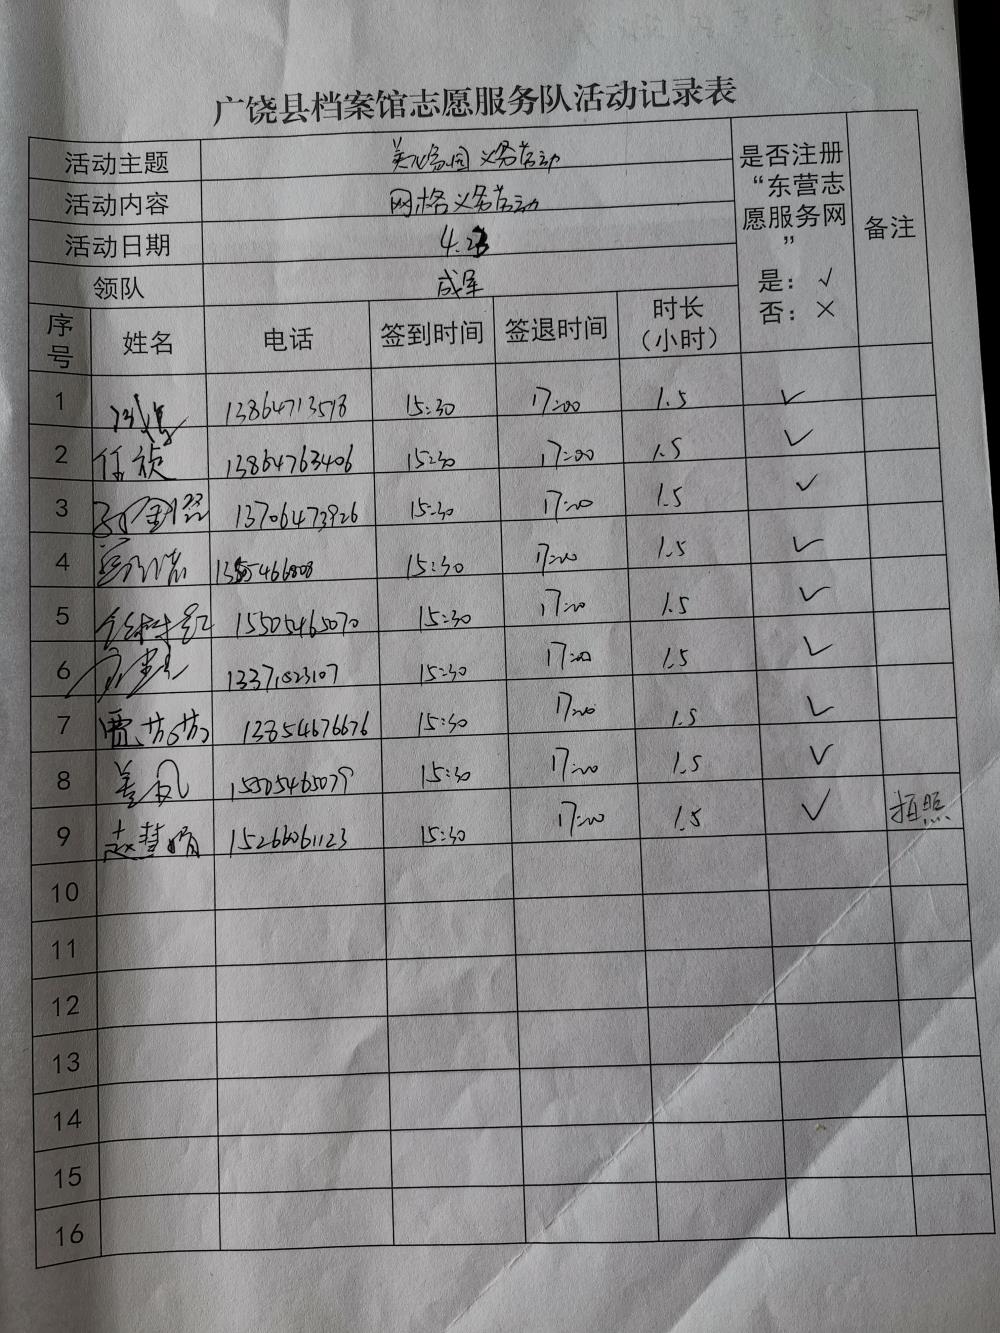 广饶县档案馆志愿服务队活动记录表
活动主题 美化家园义务劳动
活动内容 网格义务劳动
活动日期 4.23
领队 成军
是否注册“东营志愿服务网”
是：√
否：×
备注
序号 姓名 电话 签到时间 签退时间 时长（小时）
1 13864713598 15:30 17:00 1.5 ✓
2 任祯 13864763406 15:30 17:00 1.5 ✓
3 13706473926 15:30 17:00 1.5 ✓
4 15:30 17:00 1.5 ✓
5 15505465070 15:30 17:00 1.5 ✓
6 13371523107 15:30 17:00 1.5 ✓
7 贾芬芬 13854676676 15:30 17:00 1.5 ✓
8 15505465079 15:30 17:00 1.5 ✓
9 赵慧娟 15266061123 15:30 17:00 1.5 ✓ 拍照
10
11
12
13
14
15
16